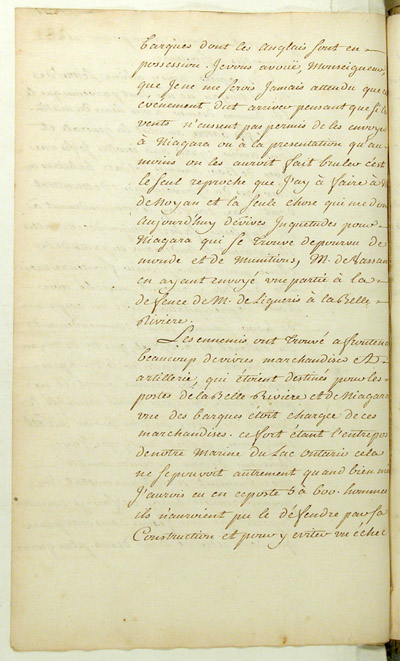 barques dont les anglais sont en
possession. Je vous avoüe, Monseigneur,
que Je ne me serois Jamais attendu que c
evenement dut arriver pensant que si le
vents n'eussent pas permis de les envoye
à Niagara ou à la presentation qu'au
moins on les auroit fait bruler c'est
le seul reproche que J'ay à faire à
de Noyan et la seule chose qui me don
aujourd'huy de vives Inquietudes pour
Niagara qui se trouve depourvu de
monde et de Munitions, M. de Vassan
en ayant envoyé une partie à la
defence de M. de Ligneris à la Belle
Riviere.
Les ennemis ont trouvé a frontena
beaucoup de vivres marchandises et
artillerie, qui étoient destinés pour les
postes de la Belle Riviere et de Niagara
une des barques étoit chargée de ces
marchandises. ce fort étant l'entrepos
de notre Marine du Lac Ontario cela
ne se pouvoit autrement quand bien me
J'aurois eu en ce poste 5 à 600. hommes
ils n'auroient pu le defendre par sa
Construction et pour y eviter un échec